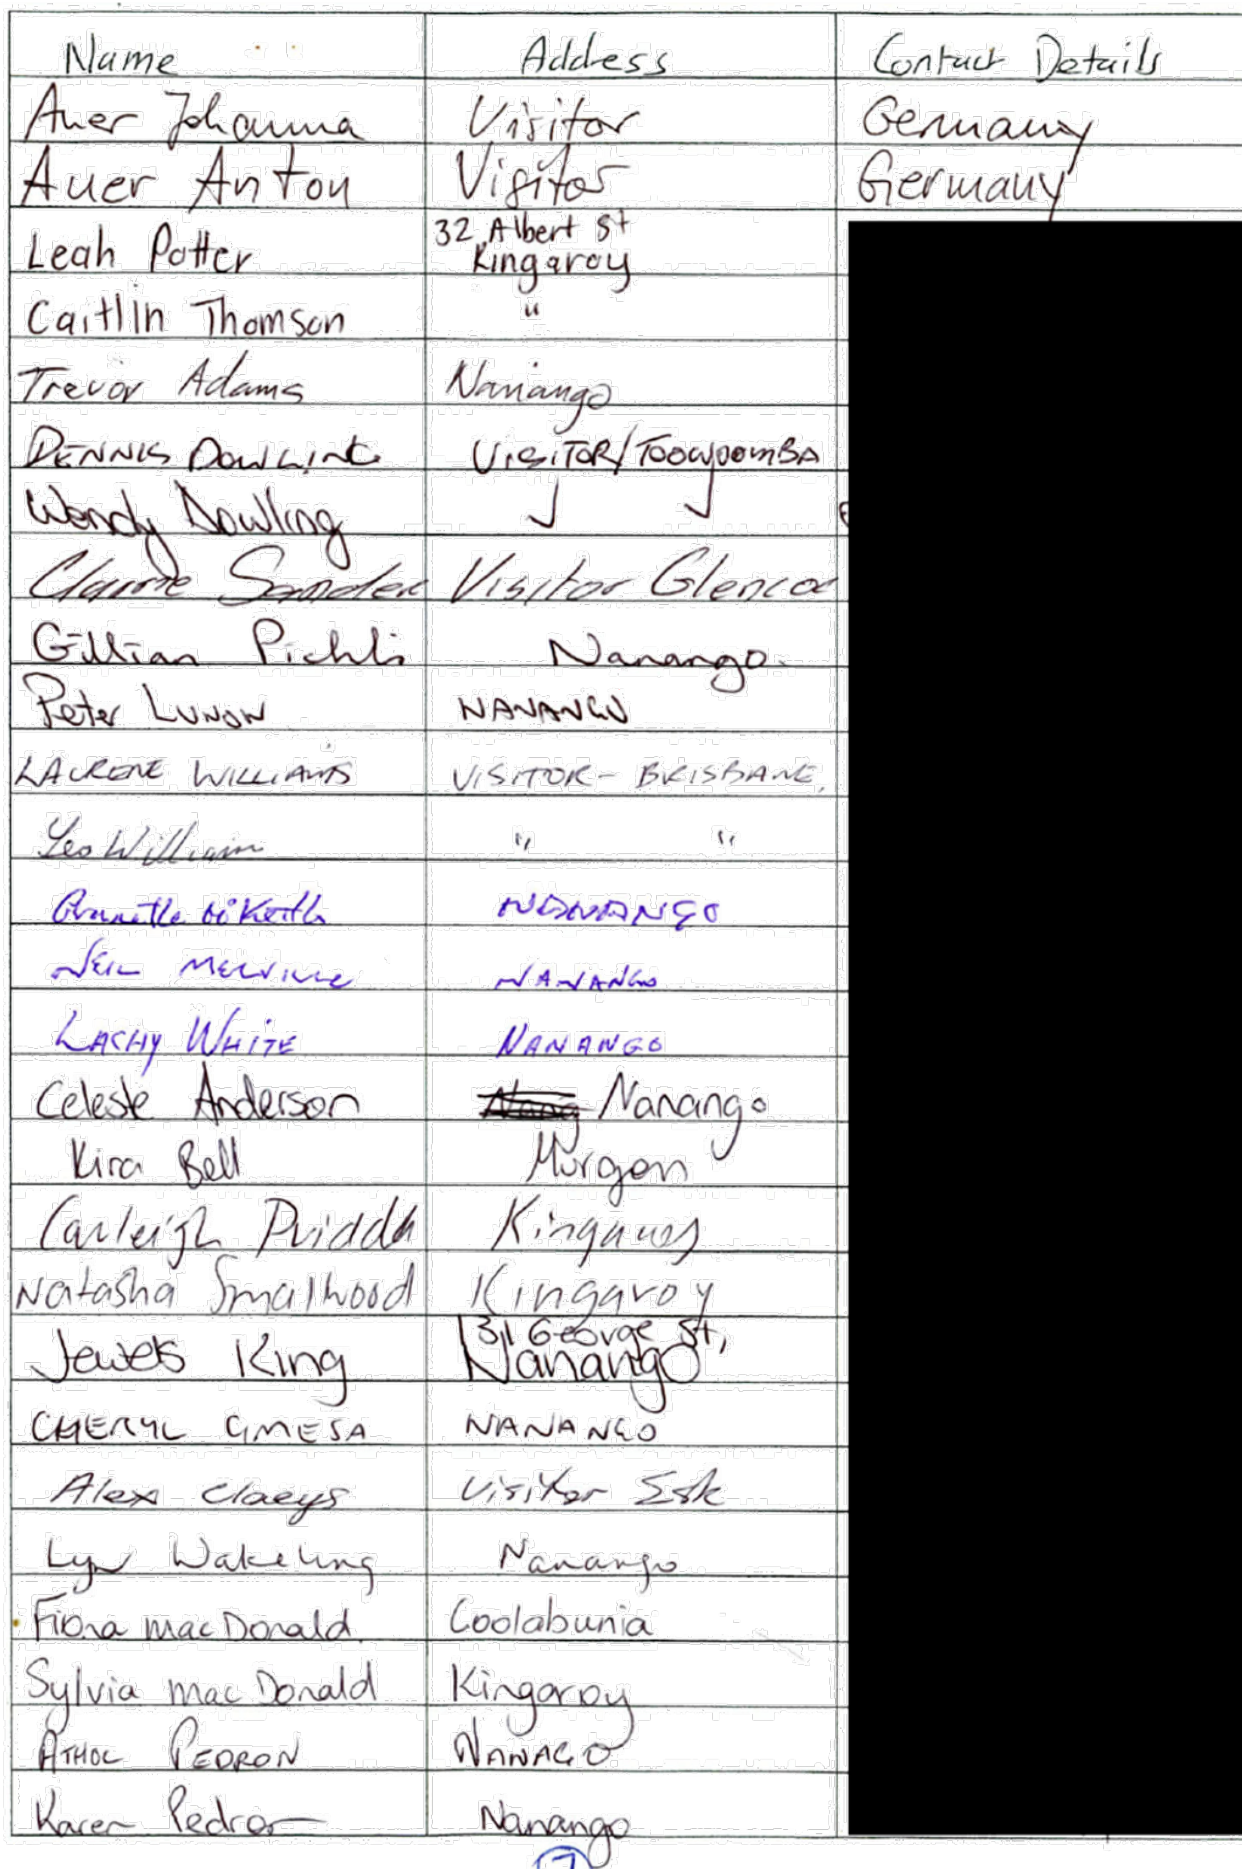 Name Address Contact Details
Auer Johanna Visitor Germany
Auer Anton Visitor Germany
Leah Potter 32 Albert St
Kingaroy
Caitlin Thomson "
Trevor Adams Nanango
DENNIS DOWLING VISITOR/TOOWOOMBA
Wendy Dowling
Visitor Glencoe
Gillian Nanango.
Peter LUNOW NANANGO
LAURENE WILLIAMS VISITOR - BRISBANE,
Leo William " "
NANANGO
NEIL MELVILLE NANANGO
LACHY WHITE NANANGO
Celeste Anderson Nanango
Kira Bell Murgon
Carleigh Kingaroy
Natasha Smallwood Kingaroy
131 George St,
Jewels King Nanango
CHERYL GMESA NANANGO
Alex Claeys Visitor Esk
Lyn Wakeling Nanango
Fiona MacDonald. Coolabunia
Sylvia MacDonald Kingaroy
ATHOL PEDRON NANAGO
Karen Pedron Nanango
7